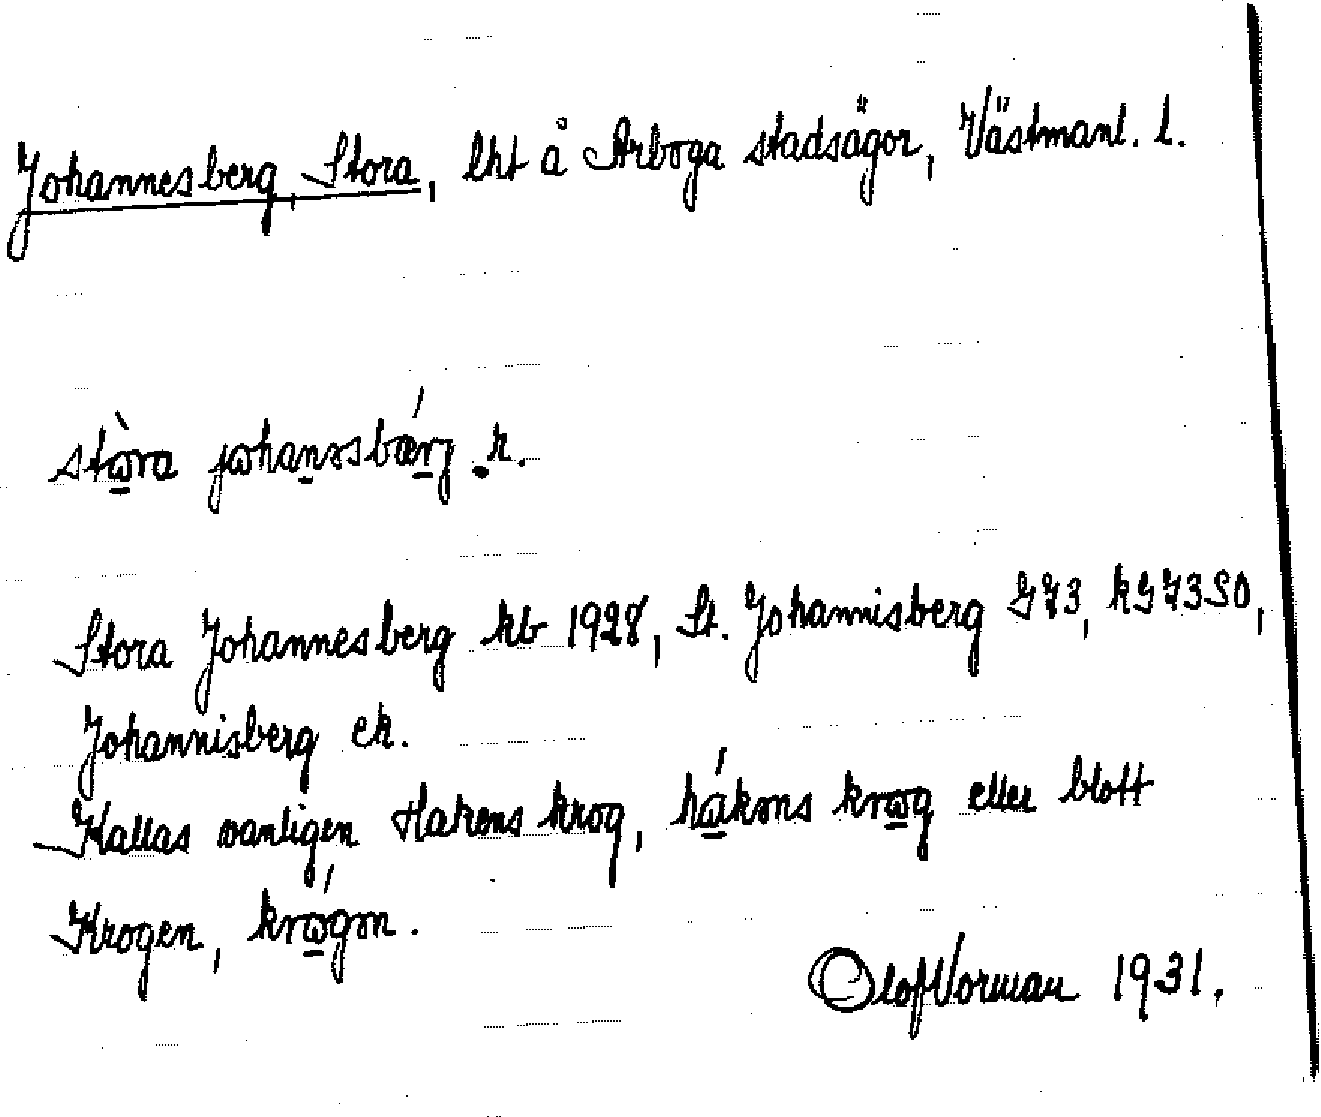 Johannesberg, Stora, lht å Arboga stadsägor, Västmanl. l.
stὼra jωhanəsbǽrj .k.
Stora Johannesberg kb 1928, St. Johannisberg GJ3, kGJ3SO,
Johannisberg ek.
Kallas vanligen Hakens krog, hákəns krωg eller blott
Krogen, krώgən.
Olof Vorman 1931.